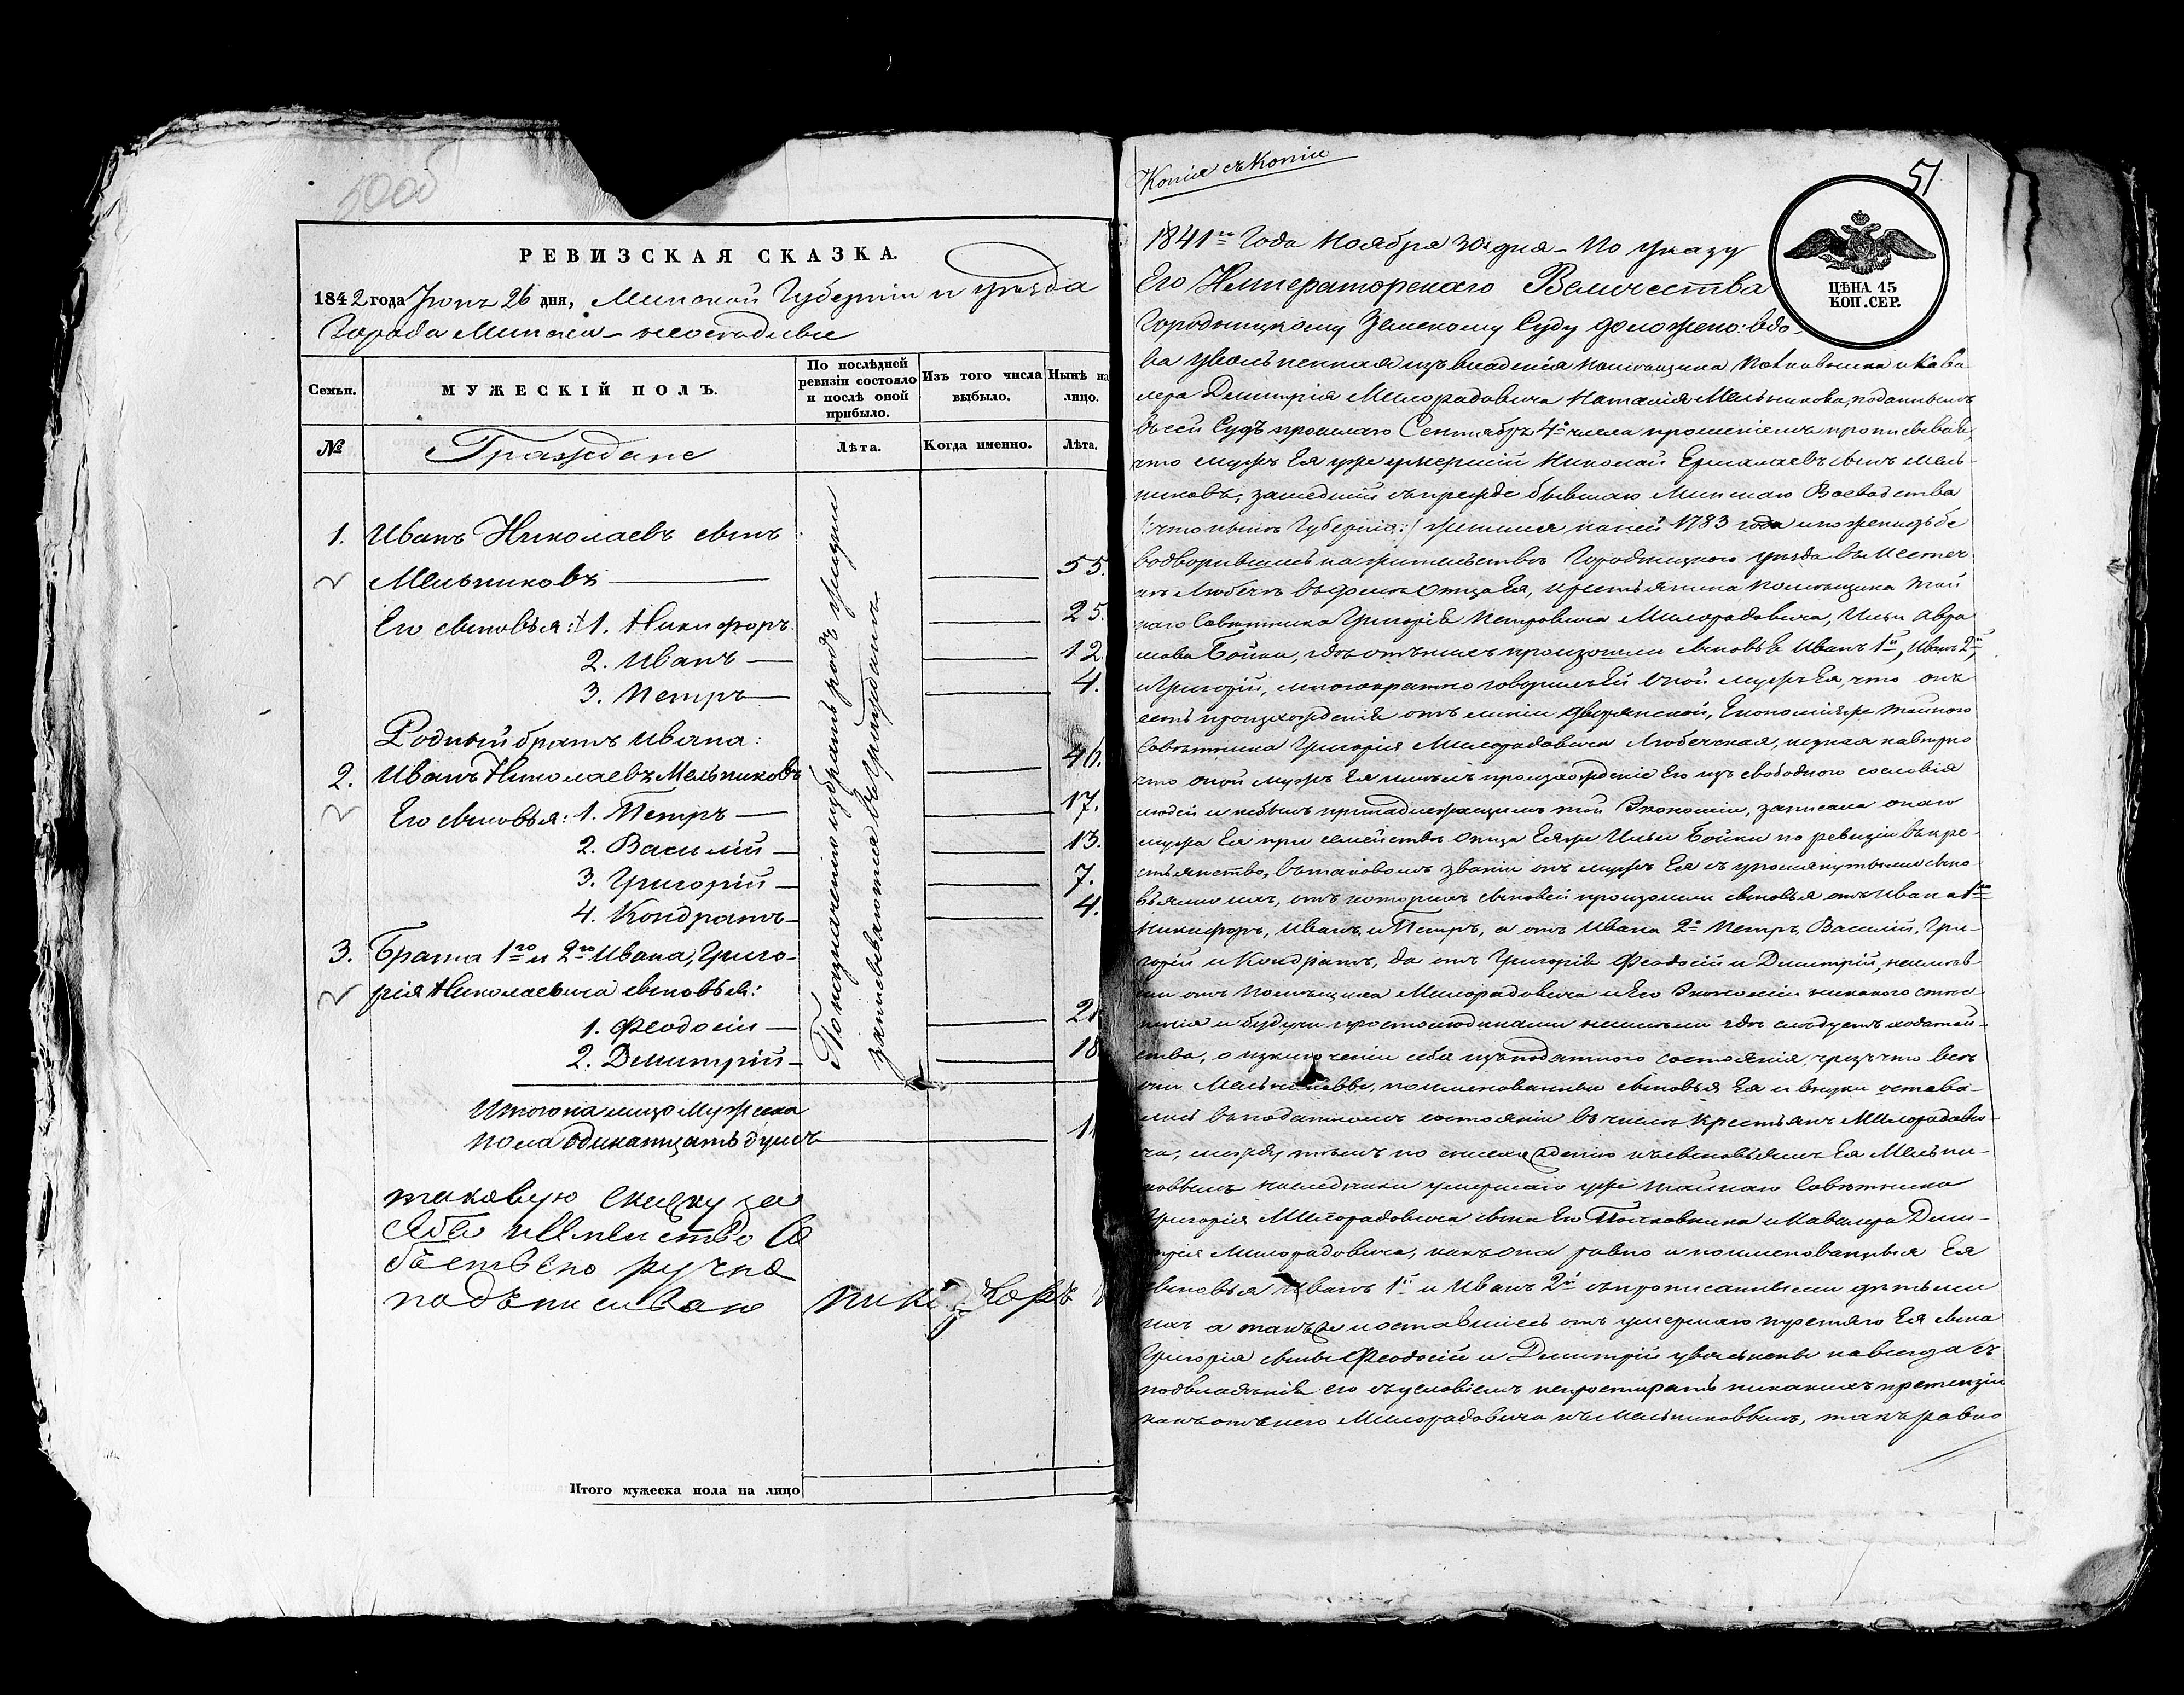 РЕВИЗСКАЯ СКАЗКА.
1842 года Іюня 26 дня, Минской Губерніи и уѣзда
Города Минска
Семьи.
МУЖЕСКІЙ ПОЛЪ.
По послѣдней ревизіи состояло и послѣ оной прибыло.
Изъ того числа выбыло.
Нынѣ на лицо.
№
Граждане
Лѣта.
Когда именно.
Лѣта.
По назначенію избрать родъ жизни
записываются въ Граждане
1. Иванъ Николаевъ сынъ
Мельниковъ 55.
Его сыновья: 1. Никифоръ 25.
2. Иванъ 12.
3. Петръ 4.
Родный братъ Ивана:
2. Иванъ Николаевъ Мельниковъ 46.
Его сыновья: 1. Петръ 17.
2. Василій 13.
3. Григорій 7.
4. Кондратъ 4.
3. Брата 1го и 2го Ивана, Григо-
рія Николаевича сыновья:
1. Феодосій 21
2. Димитрій 18
Итого на лицо Мужеска
пола одинатцать душъ 11
таковую скаску за
себа и семейство со
бственоручна
подъписиваю Никифоръ
Итого мужеска пола на лицо
Копія съ Копіи
51
ЦѢНА 15
КОП. СЕР.
1841го Года Ноября 30 дня – По Указу
Его Императорскаго Величества
Городницкому Земскому Суду доложено: вдо-
ва уволненная изъ владенія помѣщика Полковника и Кава
лера Димитрія Милорадовича Наталія Мельникова, поданнымъ
въ сей Судъ прошлаго Сентября 4го числа прошеніемъ прописывая,
что мужъ Ея уже умершій Николай Ермолаевъ сынъ Мель-
никовъ, зашедшій съ прежде бывшаго Минскаго Воеводства
/:что нынѣ Губернія:/ женился на ней 1783 года и по женидьбе
водворившись на жительство Городницкого уѣзда въ Местеч
кѣ Любечѣ въ домѣ Отца Ея, крестьянина помѣщика Тай
наго Совѣтника Григорія Петровича Милорадовича, Ильи Авра
мова Бойки, гдѣ отъ нихъ произошли сыновья Иванъ 1й, Иванъ 2й,
и Григорій, многократно говорилъ Ей оной мужъ Ея, что онъ
есть произхожденія отъ линіи дворянской, Економія же тайного
Совѣтника Григорія Милорадовича Любечская, незная навѣрно
что оной мужъ Ея имѣлъ произхожденіе Его изъ свободного сословія
людей и небылъ принадлежащимъ той Экономіи, записала онаго
мужа Ея при семействѣ Отца Ея же Ильи Бойки по ревизіи въ кре-
стьянство, въ таковомъ званіи онъ мужъ Ея съ упомянутыми сыно
вьями ихъ, отъ которыхъ сыновей произошли сыновья отъ Ивана 1го
Никифоръ, Иванъ и Петръ, а отъ Ивана 2го Петръ, Василій, Гри-
горій и Кондратъ, да отъ Григорія Феодосій и Димитрій, неимѣв
ши отъ Помѣщика Милорадовича и Его Экономіи никакого стѣс
ненія и будучи простолюдинами неимѣли гдѣ слѣдуетъ ходатай-
ства, о изключеніи себя изъ податного состоянія, чрезъ что всѣ
они Мельниковы, поименованные сыновья Ея и внуки остава-
лись въ податномъ состояніи въ числѣ крестьянъ Милорадови-
ча, между тѣмъ по снисхожденію къ сыновьямъ Ея Мельни-
ковымъ наследники умершаго уже тайнаго Совѣтника
Григорія Милорадовича сына Его Полковника и Кавалера Дими-
трія Милорадовича, какъ она равно и поименованныя Ея
сыновья Иванъ 1й и Иванъ 2й съ прописанными дѣтьми
ихъ а такъже и оставшіесь отъ умершаго третяго Ея сына
Григорія сыны Феодосій и Димитрій уволены навсегда съ
подвладѣнія его съ условіемъ непростирать никакихъ претензіи
какъ отъ него Милорадовича къ Мельниковымъ, такъ равно